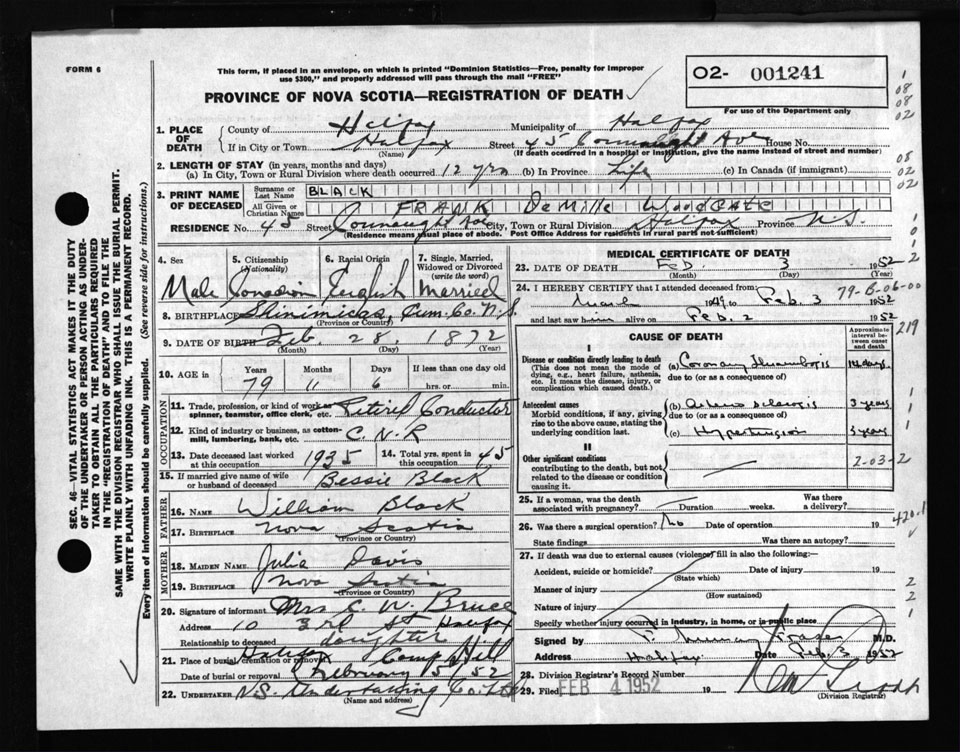 FORM 6
This form, if placed in an envelope, on which is printed "Dominion Statistics—Free, penalty for improper
use $300," and properly addressed will pass through the mail "FREE"
PROVINCE OF NOVA SCOTIA—REGISTRATION OF DEATH
02- 001241
For use of the Department only
1. PLACE OF DEATH
County of Halifax Municipality of Halifax
If in City or Town Halifax Street 45 Connaught Ave House No.
(Name) (If death occurred in a hospital or institution, give the name instead of street and number)
2. LENGTH OF STAY (in years, months and days)
(a) In City, Town or Rural Division where death occurred 12 yrs (b) In Province Life (c) In Canada (if immigrant)
3. PRINT NAME OF DECEASED
Surname or Last Name BLACK
All Given or Christian Names FRANK DeMille WOODGATE
RESIDENCE No. 45 Street Connaught Ave City, Town or Rural Division Halifax Province N.S.
(Residence means usual place of abode. Post Office Address for residents in rural parts not sufficient)
4. Sex Male
5. Citizenship (Nationality) Canadian
6. Racial Origin English
7. Single, Married, Widowed or Divorced (write the word) Married
8. BIRTHPLACE Shinimicas, Cum. Co. N.S.
(Province or Country)
9. DATE OF BIRTH Feb. 28, 1872
(Month) (Day) (Year)
10. AGE IN Years Months Days If less than one day
79 11 6 hrs. or min.
OCCUPATION
11. Trade, profession, or kind of work as spinner, teamster, office clerk, etc. Retired Conductor
12. Kind of industry or business, as cotton-mill, lumbering, bank, etc. C.N.R
13. Date deceased last worked at this occupation 1935 14. Total yrs. spent in this occupation 45
15. If married give name of wife or husband of deceased Bessie Black
FATHER
16. NAME William Black
17. BIRTHPLACE Nova Scotia
(Province or Country)
MOTHER
18. MAIDEN NAME Julia Davis
19. BIRTHPLACE Nova Scotia
(Province or Country)
20. Signature of informant Mrs C. W. Bruce
Address 10 3rd St Halifax
Relationship to deceased daughter
21. Place of burial, cremation or removal Halifax Camp Hill
Date of burial or removal February 5 52
22. UNDERTAKER N.S. Undertaking Co
(Name and address)
MEDICAL CERTIFICATE OF DEATH
23. DATE OF DEATH Feb. 3 1952
(Month) (Day) (Year)
24. I HEREBY CERTIFY that I attended deceased from:
March 1949 to Feb. 3 1952
and last saw him alive on Feb. 2 1952
79-B-06-00
CAUSE OF DEATH
Approximate interval between onset and death
219
I
Disease or condition directly leading to death
(This does not mean the mode of dying, e.g., heart failure, asthenia, etc. It means the disease, injury, or complication which caused death.)
(a) Coronary Thrombosis 14 days
due to (or as a consequence of)
Antecedent causes
Morbid conditions, if any, giving rise to the above cause, stating the underlying condition last.
(b) Arterio sclerosis 3 years
due to (or as a consequence of)
(c) Hypertension 3 years
II
Other significant conditions
contributing to the death, but not related to the disease or condition causing it.
2-03-2
25. If a woman, was the death associated with pregnancy? Duration weeks. Was there a delivery?
26. Was there a surgical operation? No Date of operation 19
420.1
State findings Was there an autopsy?
27. If death was due to external causes (violence) fill in also the following:—
Accident, suicide or homicide? Date of injury 19
(State which)
Manner of injury
(How sustained)
Nature of injury
Specify whether injury occurred in industry, in home, or in public place
Signed by F. Murray Fraser M.D.
Address Halifax Date Feb. 3 1952
28. Division Registrar's Record Number
29. Filed FEB 4 1952 19
(Division Registrar)
SEC. 46—VITAL STATISTICS ACT MAKES IT THE DUTY
OF THE UNDERTAKER OR PERSON ACTING AS UNDER-
TAKER TO OBTAIN ALL THE PARTICULARS REQUIRED
IN THE "REGISTRATION OF DEATH" AND TO FILE THE
SAME WITH THE DIVISION REGISTRAR WHO SHALL ISSUE THE BURIAL PERMIT.
WRITE PLAINLY WITH UNFADING INK. THIS IS A PERMANENT RECORD.
Every item of information should be carefully supplied. (See reverse side for instructions.)